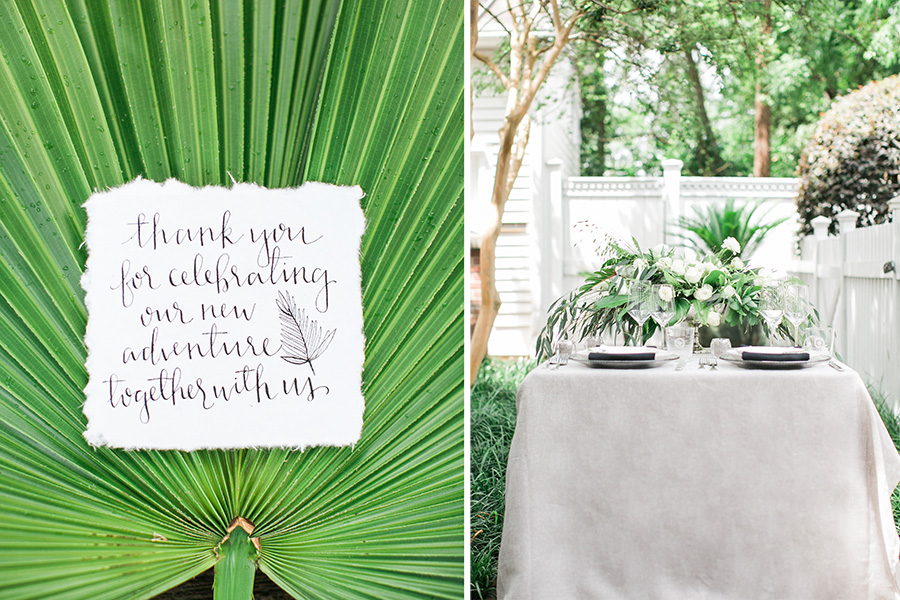 thank you
for celebrating
our new
adventure
together with us